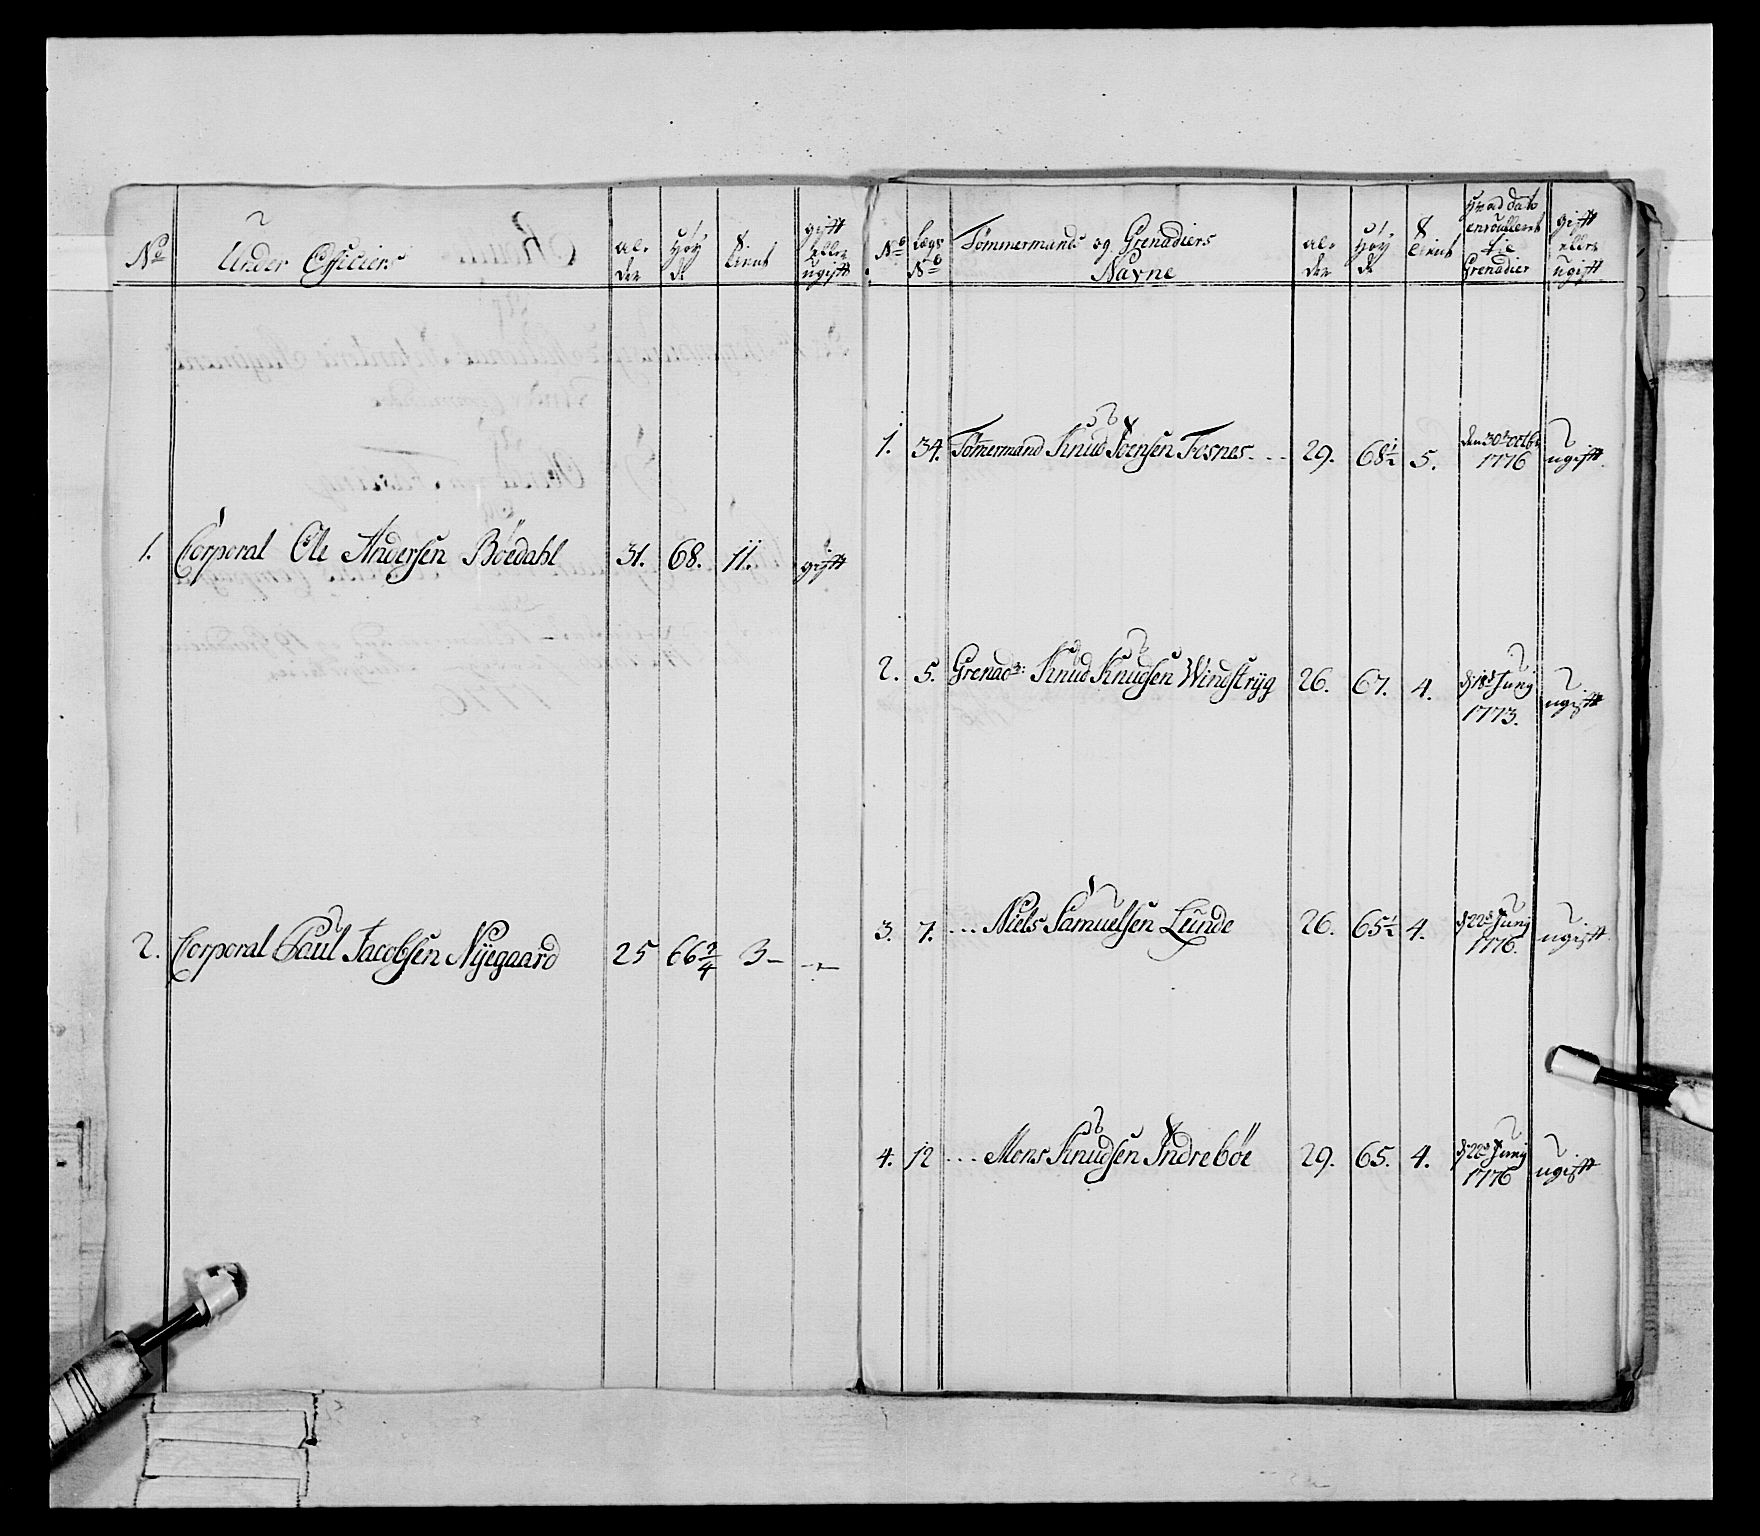 No
Under Officiers
al-
der
Høy
de
tient
gift
eller
ugift
1. Corporal Ole Andersen Böedahl 31. 68. 11. gift
2. Corporal Paul Jacobsen Nÿegaard 25 66 3/4 3 –
No
Lægs
No
Tømmermands og Grenadiers
Navne
al-
der
Høy
de
tient
hvad dato
enroullert
til
Grenadier
gift
eller
ugift
1. 34. Tømermand Knud Joensen Fosnes 29. 68½ 5. den 30t Octbr
1776 ugift
2. 5. Grenad: Knud Knudsen Windstrÿg 26. 67. 4. d 18d Junÿ
1773. ugift
3. 7. ... Niels Samuelsen Lunde 26. 65½ 4. d 22d Junÿ
1776. ugift
4. 12 ... Mons Knudsen Indreböe 29. 65. 4. d 22d Junÿ
1776 ugift